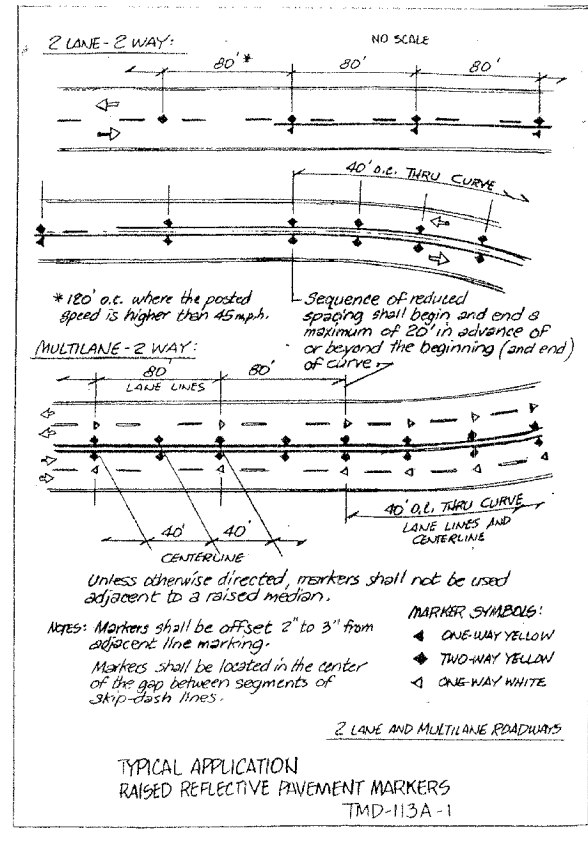 2 LANE-2 WAY:
NO SCALE
80'* 80' 80'
40' O.C. THRU CURVE
* 180' o.c. where the posted
speed is higher than 45 m.p.h.
Sequence of reduced
spacing shall begin and end a
maximum of 20' in advance of
or beyond the beginning (and end)
of curve.
MULTILANE-2 WAY:
80 80'
LANE LINES
40' O.C. THRU CURVE
LANE LINES AND
CENTERLINE
40' 40'
CENTERLINE
Unless otherwise directed, markers shall not be used
adjacent to a raised median.
NOTES: Markers shall be offset 2" to 3" from
adjacent line marking.
Markers shall be located in the center
of the gap between segments of
skip-dash lines.
MARKER SYMBOLS:
ONE-WAY YELLOW
TWO-WAY YELLOW
ONE-WAY WHITE
2 LANE AND MULTILANE ROADWAYS
TYPICAL APPLICATION
RAISED REFLECTIVE PAVEMENT MARKERS
TMD-113A-1